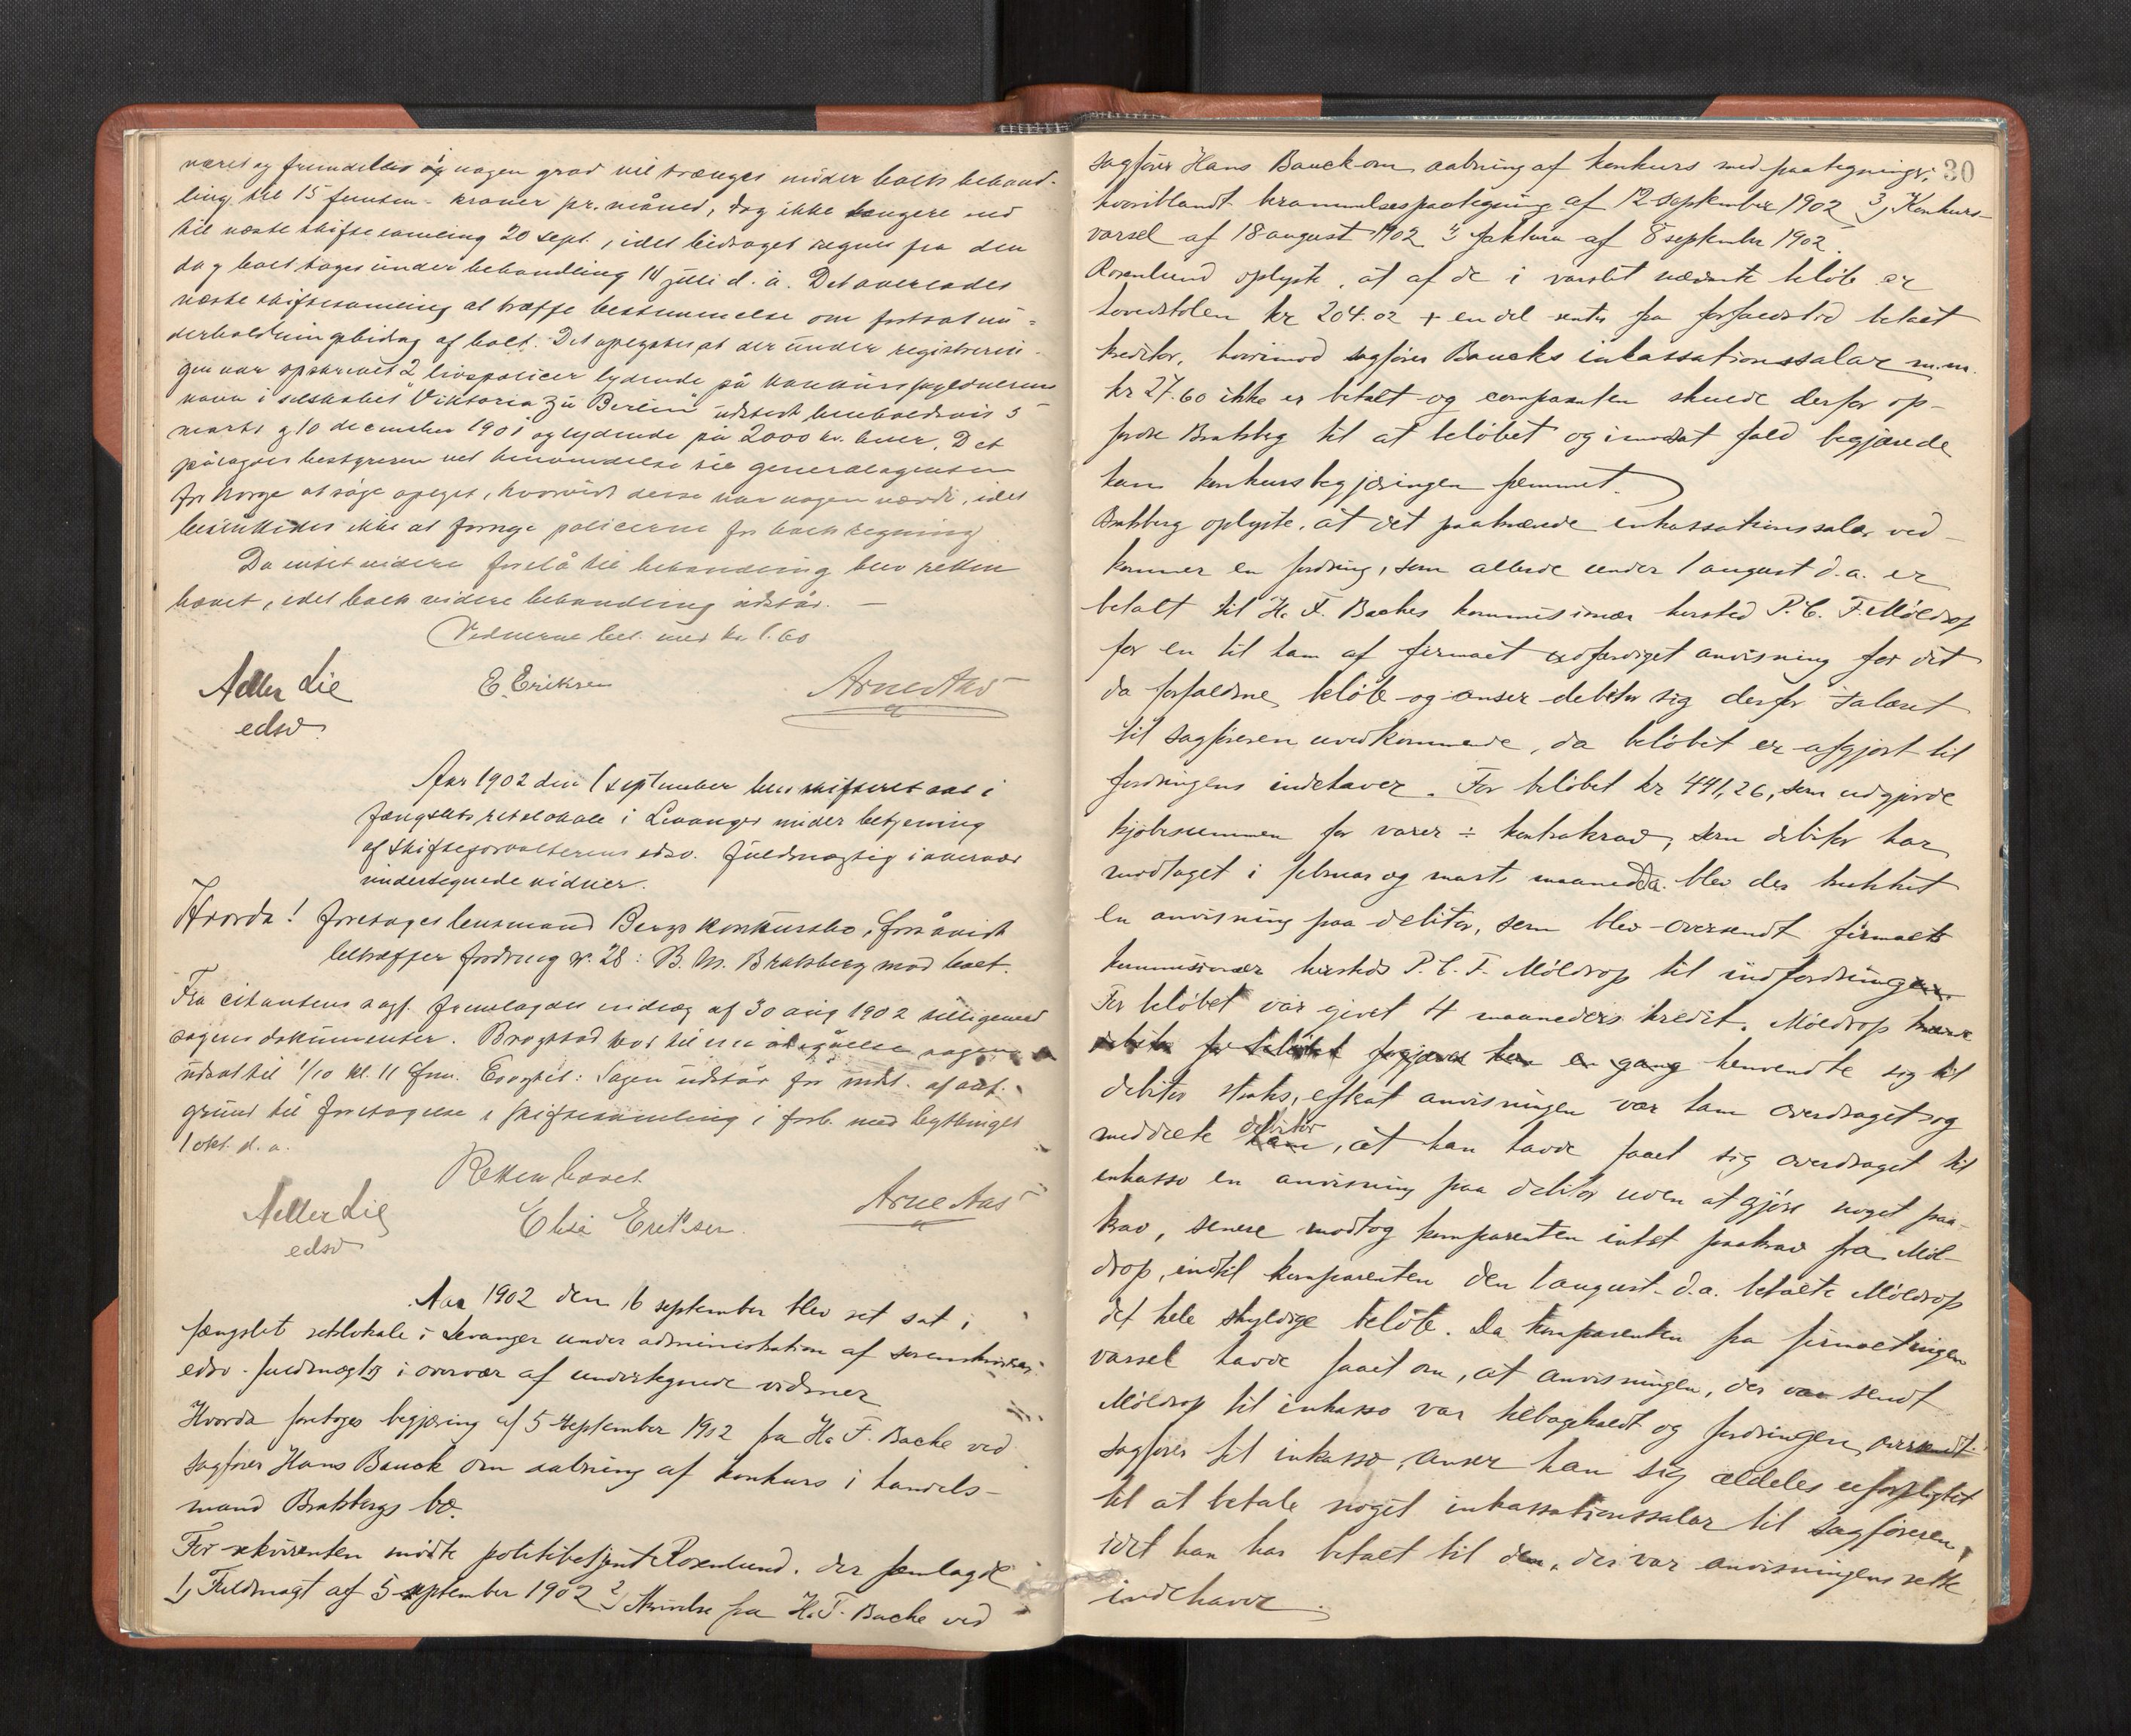 været og fremdeles i nogen grad vil trænges under boets behand-
ling, til 15 femten - kroner pr. måned, dog ikke længere end
til næste skiftesamling 20 sept., idet bidraget regnes fra den
dag boet toges under behandling 14 juli d. å. Det overlades
næste skiftesamling at træffe bestemmelse om fortsat un-
derholdningsbidrag af boet. Det oplystes at der under registrerin-
gen var opskrevet 2 livspolicer lydende på konkursskyldnerens
navn i selskabet "Viktoria zu Berlin" udstedt henholdsvis 5
marts og 10 december 1901 og lydende på 2000 kr. hver. Det
pålagdes bestyreren ved henvendelse til generalagenten
for Norge at søge oplyst, hvorvidt disse har nogen værdi, idet
besluttedes ikke at fornye policerne for boets regning.
Da intet videre forelå til behandling blev retten
hævet, idet boets videre behandling udstår. —
Vidnerne bet. med kr 1.60
Adler Lie
edsv.
E. Eriksen
Arne Aas
Aar 1902 den 1 september blev skifteret sat i
fængslets retslokale i Levanger under betjening
af skifteforvalterens edsv. fuldmægtig i overvær
undertegnede vidner.
Hvorda! foretages lensmand Bergs konkursbo, forsåvidt
betræffer fordring nr. 28: B. M. Bratsberg mod boet.
Fra citantens sagf. fremlagdes indlæg af 30 aug 1902 tilligemed
sagens dokumenter.
udsat til 1/10 kl. 11 fm. Eragtet: Sagen udstår for indst. af anf.
grund til foretagelse i skiftesamling i forb. med
1 okt. d. a.
Retten hævet
Adler Lie
edsv
Elise Eriksen
Arne Aas
Aar 1902 den 16 september blev ret sat i
fængslets retslokale i Levanger under administration af sorenskriverens
edsv. fuldmægtig i overvær af undertegnede vidner
Hvorda foretoges begjæring af 5 september 1902 fra H. F. Backe ved
sagfører Hans Bauck om aabning af konkurs i handels-
mand Bratsbergs bo.
For rekvirenten mødte politibetjent Rosenlund, der fremlagde
1, Fuldmagt af 5 september 1902 2, Skrivelse fra H. F. Backe ved
30
sagfører Hans Bauck om aabning af konkurs med paategninger,
hvoriblandt berammelsespaategning af 12 september 1902 3, Konkurs-
varsel af 18 august 1902 4, faktura af 8 september 1902.
Rosenlund oplyste, at af de i varslet nævnte beløb er
hovedstolen kr 204.02 + en del renter fra forfaldstid betalt
kreditor, hvorimod sagfører Baucks inkassationssalær m.m.
kr 27.60 ikke er betalt og comparenten skulde derfor op-
fordre Bratsberg til at beløbet og i modsat fald begjærede
han konkursbegjæringen fremmet.
Bratsberg oplyste, at det paakrævede inkassationssalær ved-
kommer en fordring, som allerede under 1 august d. a. er
betalt til H. F. Backes kommissionær hersted P. C. F. Møldrop
for en til ham af firmaet udfærdiget anvisning for det
da forfaldne beløb og anser debitor sig derfor salæret
til sagføreren uvedkommende, da beløbet er afgjort til
fordringens indehaver. For beløbet kr 441,26, som udgjorde
kjøbesummen for varer ÷ kontrakrav, som debitor har
modtaget i februar og marts maaned d.a. blev der trukket
en anvisning paa debitor, som blev oversendt firmaets
kommissionær hersteds P. C. F. Møldrop til indfordring
For beløbet var givet 4 maaneders kredit. Møldrop
henvendte sig til
debitor straks, efterat anvisningen var ham overdraget og
meddelte debitor, at han havde faaet sig overdraget til
inkasso en anvisning paa debitor uden at gjøre noget paa-
krav, senere modtog komparenten intet paakrav fra Møl-
drop, indtil komparenten den 1 august d.a. betalte Møldrop
det hele skyldige beløb. Da komparenten fra firmaet ingen
varsel havde faaet om, at anvisningen, der var sendt
Møldrop til inkasso var tilbagekaldt og fordringen oversendt
sagfører til inkasso, anser han sig aldeles uforpligtet
til at betale noget inkassationssalær til sagføreren,
idet han har betalt til den, der var anvisningens rette
indehaver.